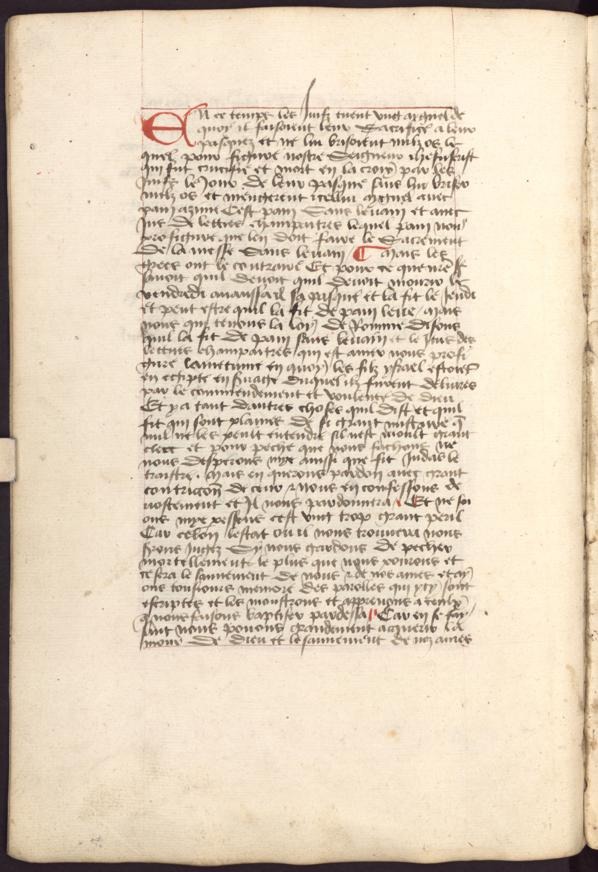 En ce temps les Juifz tuent ung aignel de
quoy il faisoient leur sacrifice a leur
pasques et ne lui brisoient nulz os le
quel pour figure nostre seigneur Jhesucrist
qui fut crucifie et mort en la croix par les
Juifz le jour de leur pasque sans lui briser
nulz os et mengerent icellui aignel avec
pain azime C'est pain sans levain et avec
jus de lettues champaitres lequel pain nous
profigure que len doit faire le sacrement
de la messe sans levain Mais les
grecs ont le contraire Et pour ce que
savoit quil devoit quil devoit mourir le
vendredi sa pasque et la fit le jeudi
et peut estre quil la fit de pain leue / Mais
nous qui tenons la loy de Romme disons
quil la fit de pain sans levain et le jus des
lettues champaitres / qui est amer nous profi
gure lamertume en quoy les filz ysrael estoient
en egipte en servage duquel ilz furent delivres
par le commendement et voulente de dieu
Et y a tant dautres choses quil dist et quil
fit qui sont plains de si grant mistaire q
nul ne les peult entendre sil nest moult grant
clerc et pour peche que nous fachons ne
nous desperons mye ainsi que fit Judas le
traistre / Mais en querons pardon avec grant
contricion de ceur et nous en confessons de
votement et Il nous pardonnera / Et ne soi
ons mye pesseus cest ung trop grant peril
Car celon lestat ou il nous trouvera nous
serons Jugez Sy nous gardons de pecher
mortellement le plus que nous porrons et
ce sera le sauvement de nous et de nos ames et ay
ons tousiours memore des parolles qui cy sont
escriptes et les monstrons et apprenons a ceulx
q nous faisons baptiser pardessa // Car en se fai
sant nous pouons grandement acquerir la
mour de dieu et le sauvement de noz ames